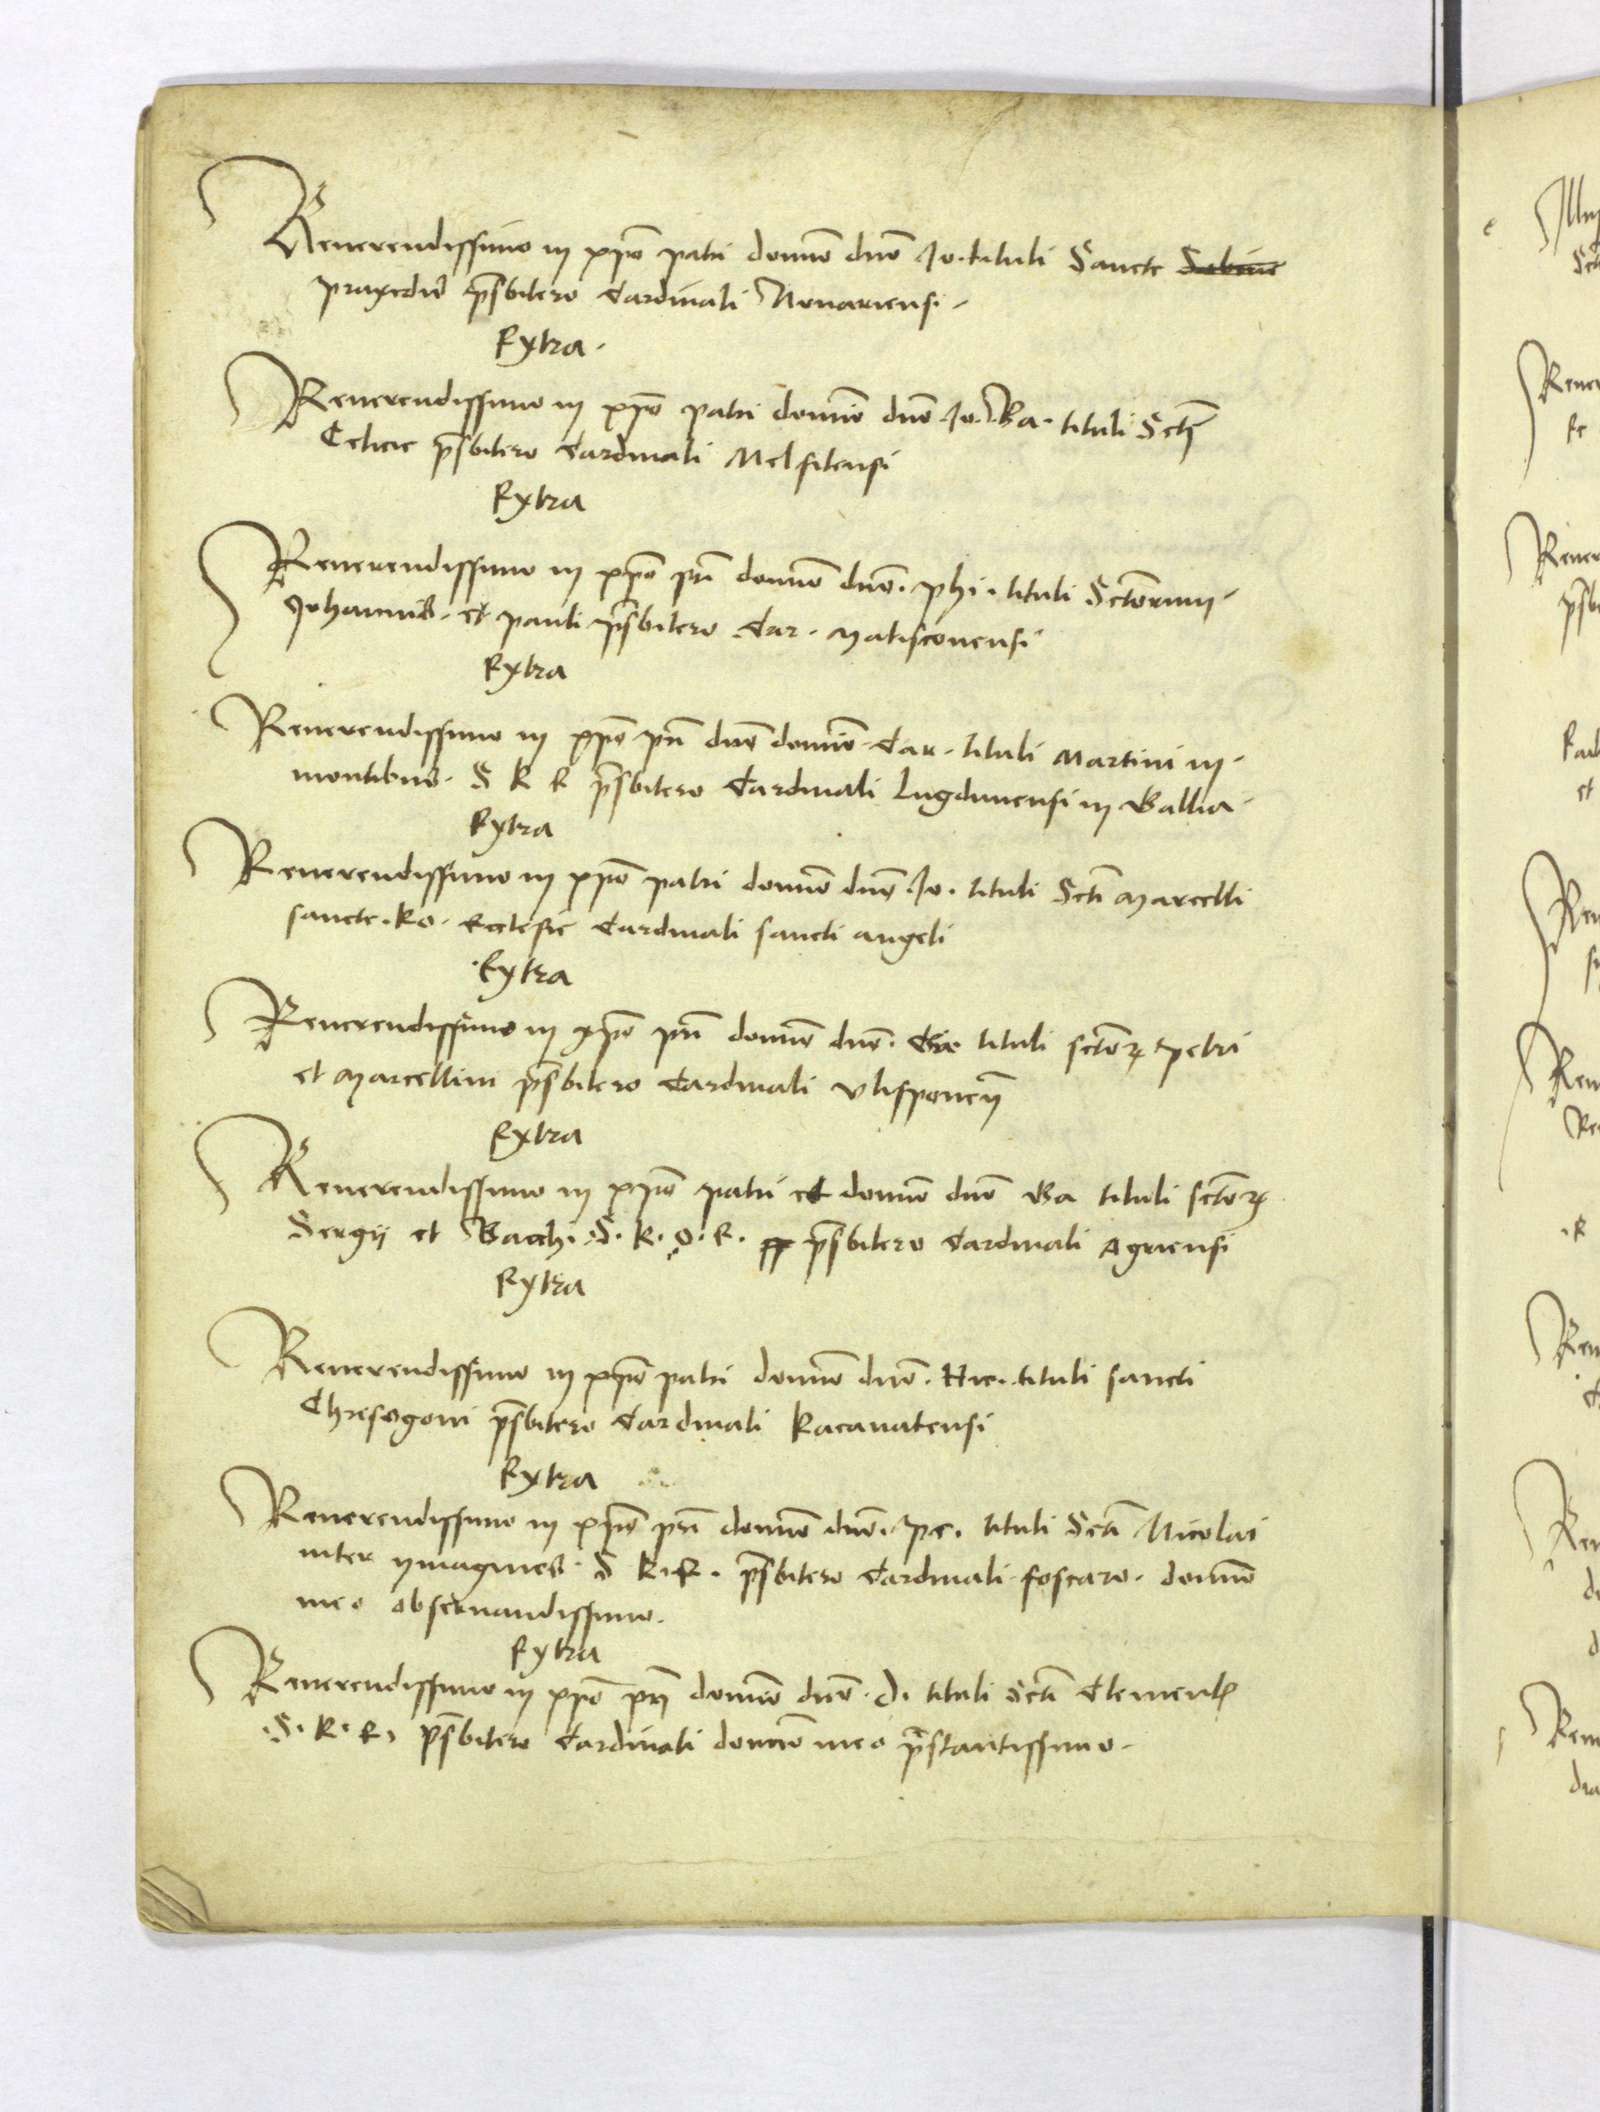 Reuerendissimo in xp̄o patri domīo dn̄o Jo. tituli Sancte Sabine
praxedis pr̄sbitero Cardinali Nouariensi.
Extra.
Reuerendissimo in xp̄o patri domīo dn̄o Jo. Ba. tituli Sctē
Celicie pr̄sbitero Cardinali Melfitensi
Extra
Reuerendissimo in xp̄o pr̄i domīo dn̄o. phi. tituli Sctōrum
Johannis. et pauli pr̄sbitero Car. Matisconensi
Extra
Reuerendissimo in xp̄o pr̄i dn̄o domīo. Car. tituli Martini in
montibus. S R E pr̄sbitero Cardinali Lugdunensi in Gallia
Extra
Reuerendissimo in xp̄o patri domīo dn̄o Jo. tituli Sctī Marcelli
sancte. Ro. Ecclesie Cardinali sancti angeli
Extra
Reuerendissimo in xp̄o pr̄i domīo dn̄o. tituli sctōꝝ petri
et Marcellini pr̄sbitero Cardinali vlisponen̄
Extra
Reuerendissimo in xp̄o patri et domīo dn̄o Ga tituli sctōꝝ
Sergij et Bacch. S. R. E. pr̄sbitero Cardinali Agriensi
Extra
Reuerendissimo in xp̄o patri domīo dn̄o. Hie. tituli sancti
Chresogoni pr̄sbitero Cardinali Racanatensi
Extra
Reuerendissimo in xp̄o pr̄i domīo dn̄o. pe. tituli Sctī Nicolai
inter ymagines. S R. E. pr̄sbitero Cardinali foscaro. domīo
meo obseruandissimo.
Extra
Reuerendissimo in xp̄o pr̄i domīo dn̄o. d. tituli Sctī Clementꝭ
.S. R. E. pr̄sbitero Cardinali domīo meo pr̄stantissimo.